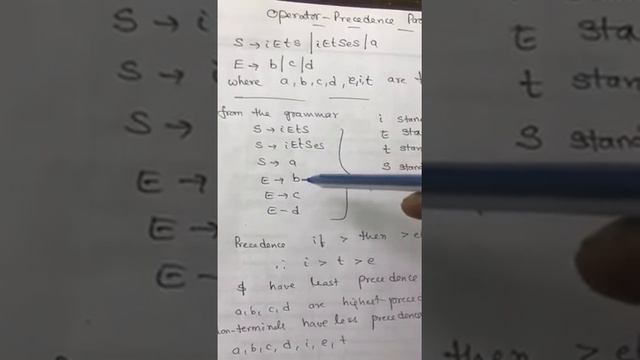 Operator-Precedence
S → iEtS | iEtSeS | a
E → b | c | d
where a, b, c, d, e, i, t are
from the grammar
S → iEtS
S → iEtSeS
S → a
E → b
E → c
E - d
i stan
E sta
t stan
S stand
Precedence if > then > e
∴ i > t > e
$ have least precedence
a, b, c, d are highest
non-terminals have less precedence
a, b, c, d, i, e, t